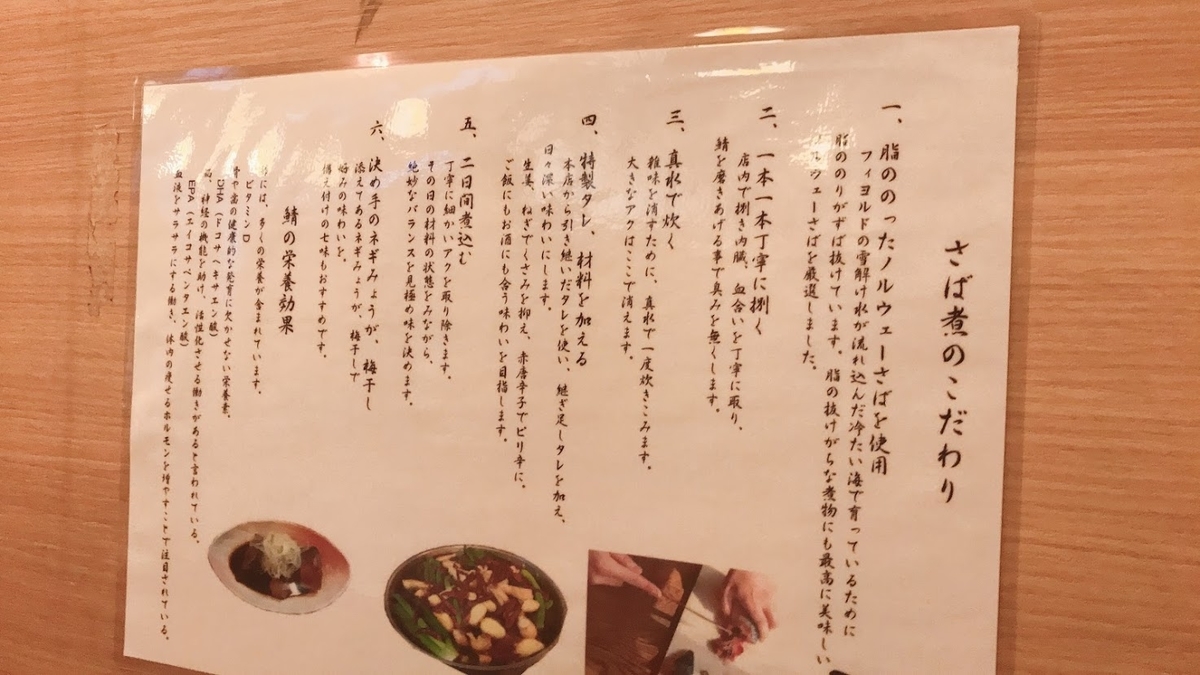 さば煮のこだわり
一、脂ののったノルウェーさばを使用
フィヨルドの雪解け水が流れ込んだ冷たい海で育っているために
脂ののりがずば抜けています。脂の抜けがちな煮物にも最高に美味しい
ノルウェーさばを厳選しました。
二、一本一本丁寧に捌く
店内で捌き内臓、血合いを丁寧に取り、
鯖を磨きあげる事で臭みを無くします。
三、真水で炊く
雑味を消すために、真水で一度炊きこみます。
大きなアクはここで消えます。
四、特製タレ、材料を加える
本店から引き継いだタレを使い、継ぎ足しタレを加え、
日々深い味わいにします。
生姜、ねぎでくさみを抑え、赤唐辛子でピリ辛に。
ご飯にもお酒にも合う味わいを目指します。
五、二日間煮込む
丁寧に細かいアクを取り除きます。
その日の材料の状態をみながら、
絶妙なバランスを見極め味を決めます。
六、決め手のネギみょうが、梅干し
添えてあるネギみょうが、梅干しで
好みの味わいを。
備え付けの七味もおすすめです。
鯖の栄養効果
には、多くの栄養が含まれています。
ビタミンD
骨や歯の健康的な発育に欠かせない栄養素。
DHA（ドコサヘキサエン酸）
脳、神経の機能を助け、活性化させる働きがあると言われている。
EPA（エイコサペンタエン酸）
血液をサラサラにする働き、体内の痩せるホルモンを増やすことで注目されている。